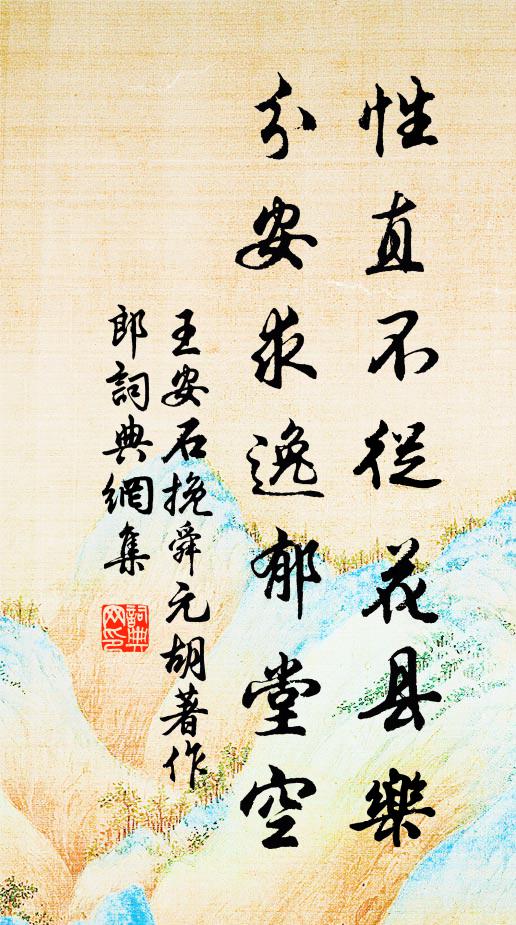 性直不從花县樂
分安求逸郁堂空
王安石挽舜元胡著作
郎詞典網集
詞典